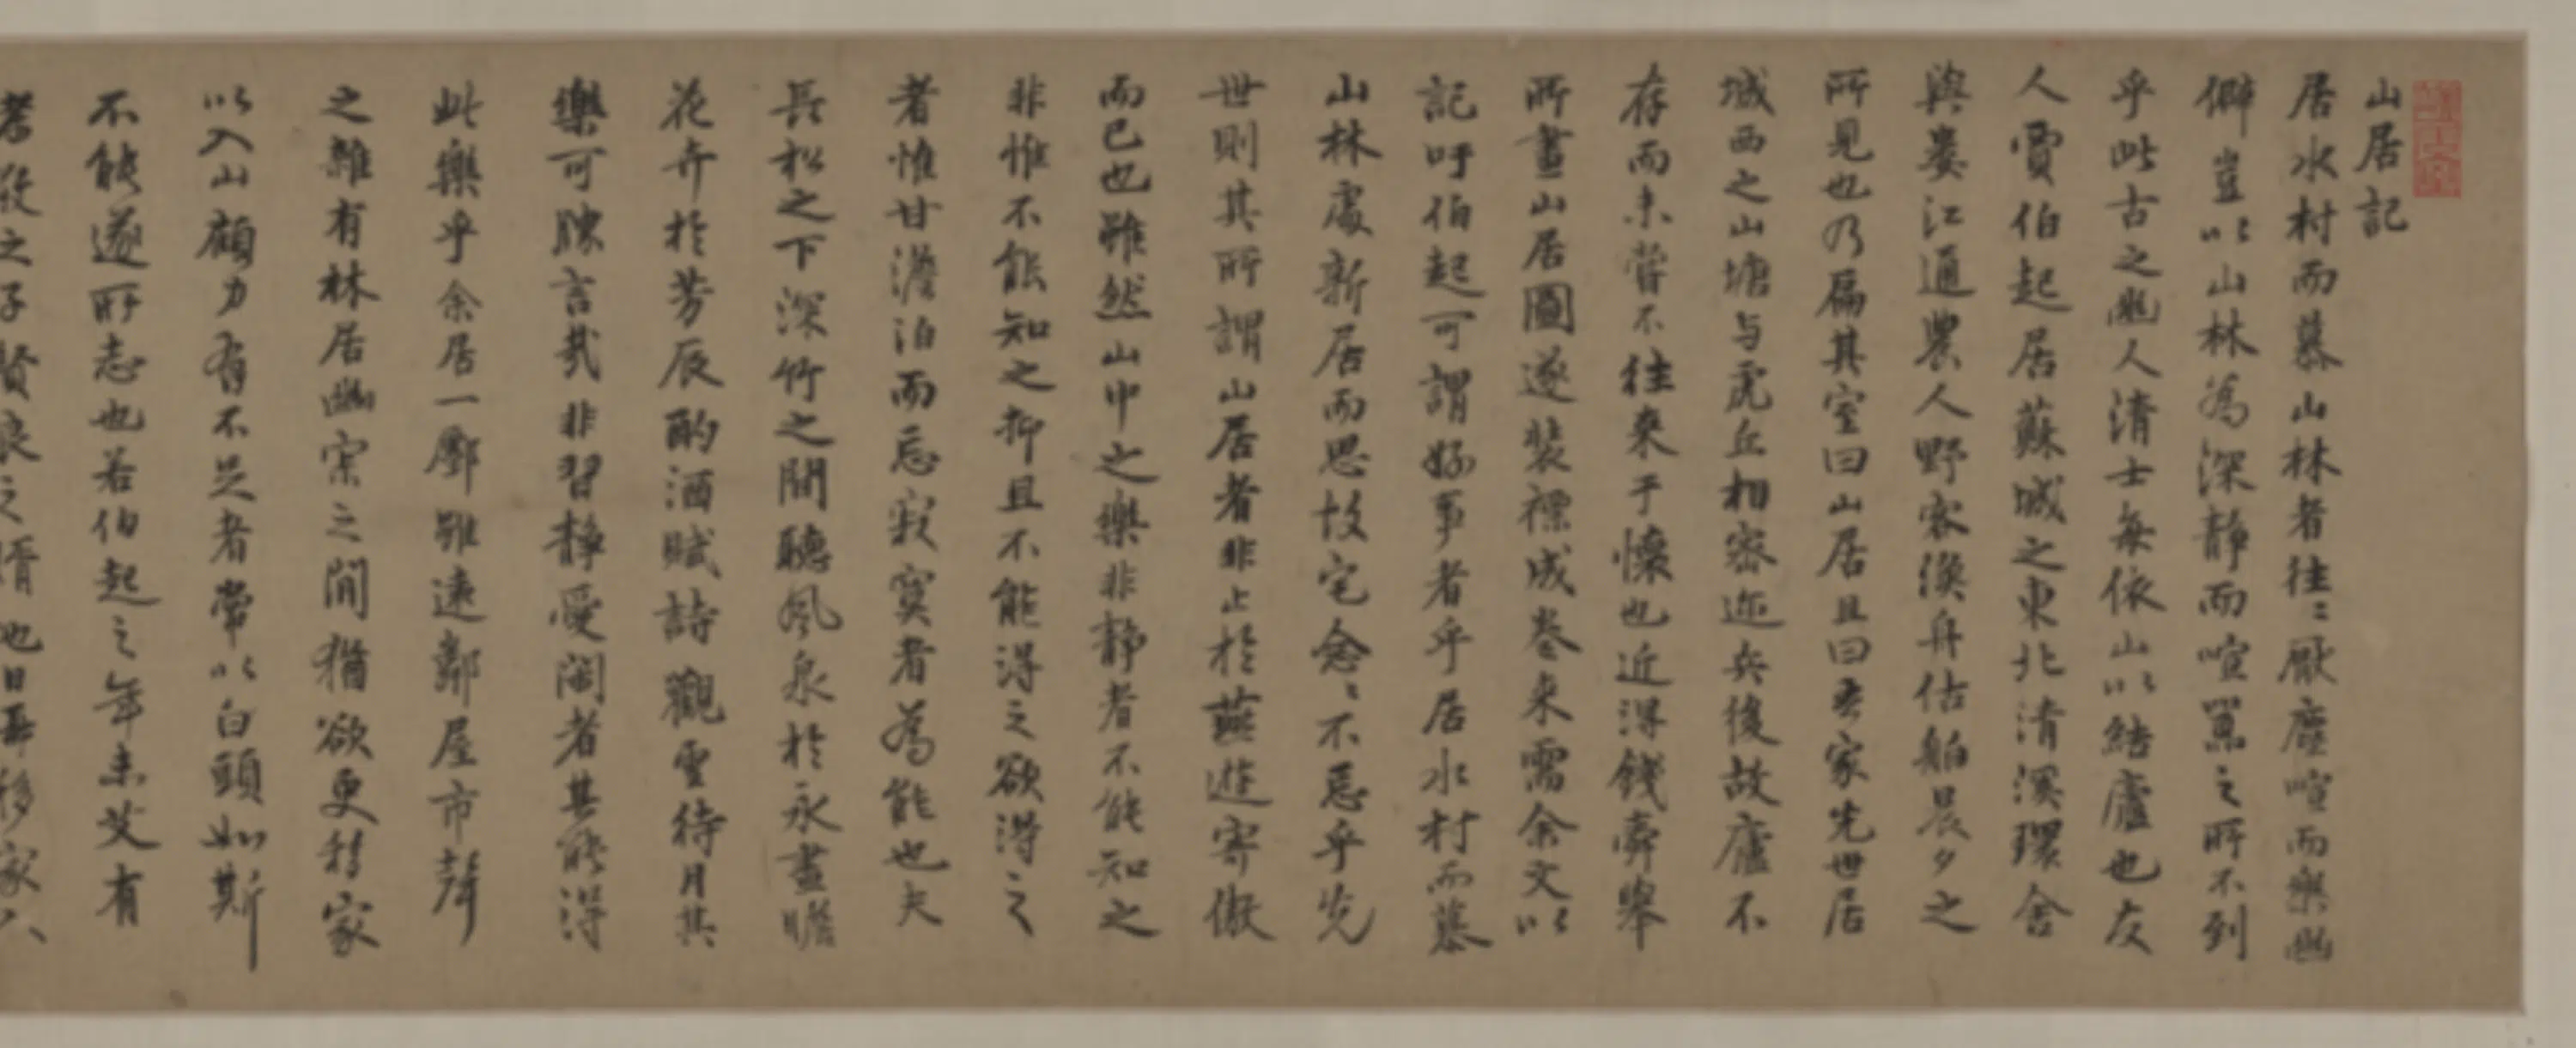 山居記
居水村而慕山林者往〻厭塵喧而樂幽
僻豈以山林為深静而喧罵之所不到
乎此古之幽人清士每依山以結廬也友
人賈伯起居蘇城之東北清溪環舍
與婁江通農人野客漁舟估舶晨夕之
所見也乃扁其室曰山居且曰吾家先世居
城西之山塘与虎丘相密迩兵後故廬不
存而未嘗不往來于懷也近得錢舜舉
所畫山居圖遂裝褾成卷來需余文以
記吁伯起可謂好事者乎居水村而慕
山林處新居而思故宅念〻不忘乎先
世則其所謂山居者非止於燕遊寄傲
而已也雖然山中之樂非静者不能知之
非惟不能知之抑且不能得之欲得之
者惟甘澹泊而忘寂寞者為能也夫
長松之下深竹之間聽風泉於永晝瞻
花卉於芳辰酌酒賦詩觀雲待月其
樂可勝言哉非習静愛閑者其能得
此樂乎余居一鄽雖遠鄰屋市聲
之雜有林居幽寂之間猶欲更移家
以入山顧力有不足者常以白頭如斯
不能遂所志也若伯起之年未艾有
之子賢良之壻也日再移家